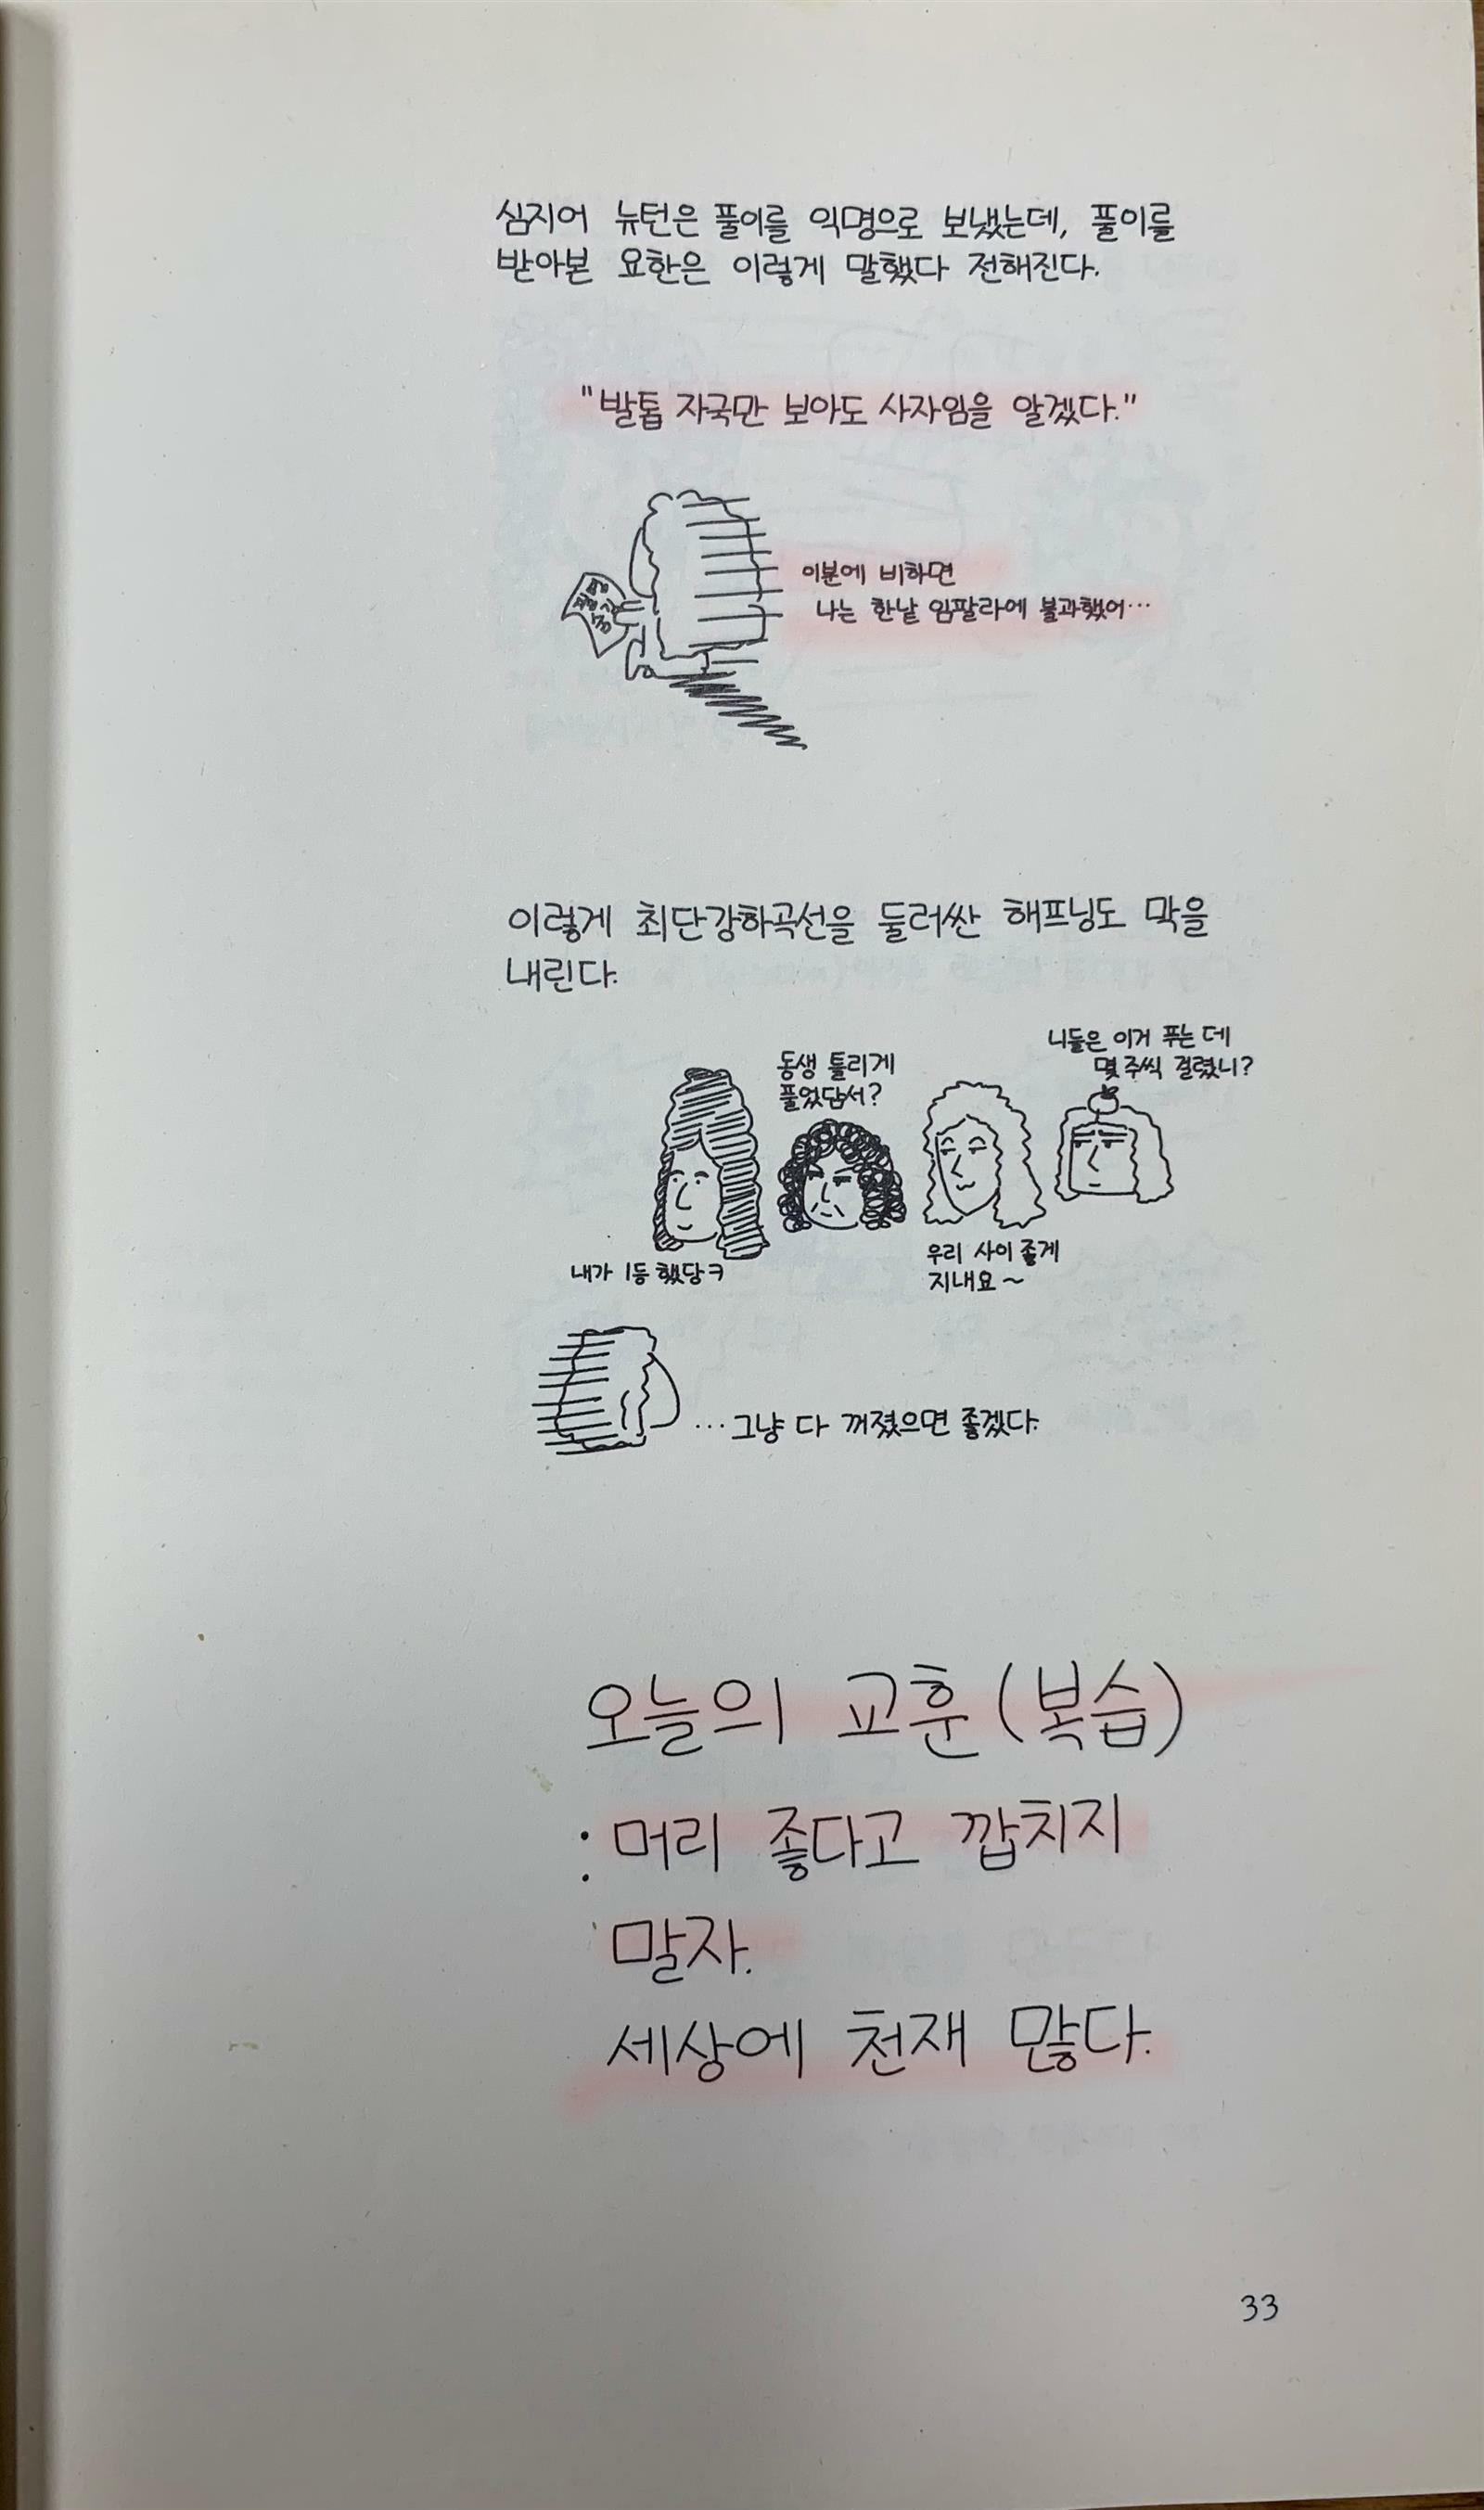 심지어 뉴턴은 풀이를 익명으로 보냈는데, 풀이를
받아본 요한은 이렇게 말했다 전해진다.
"발톱 자국만 보아도 사자임을 알겠다."
이분에 비하면
나는 한낱 임팔라에 불과했어…
이렇게 최단강하곡선을 둘러싼 해프닝도 막을
내린다.
니들은 이거 푸는 데
몇 주씩 걸렸니?
동생 틀리게
풀었담서?
내가 1등 했당ㅋ
우리 사이 좋게
지내요~
…그냥 다 꺼졌으면 좋겠다.
오늘의 교훈(복습)
: 머리 좋다고 깝치지
말자.
세상에 천재 많다.
33